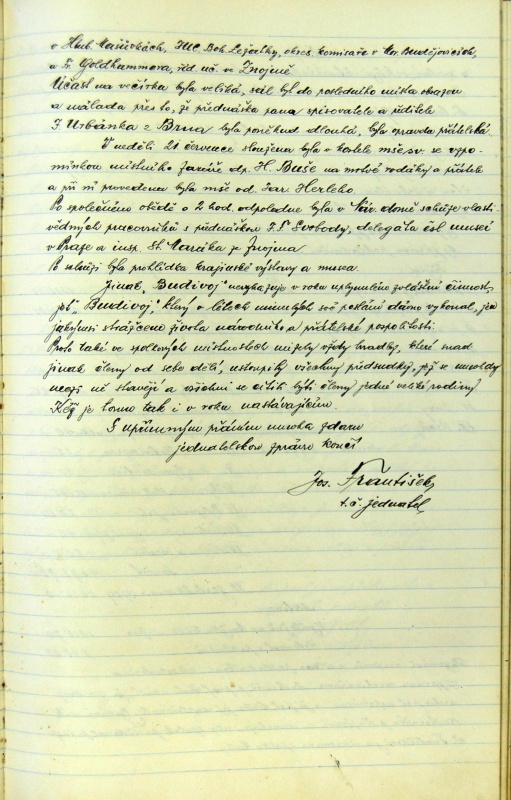 v Hlub. Mašůvkách, JUC Boh. Ležatky, okres. komisaře v Mor. Budějovicích,
a Fr. Goldhammera, říd. uč. ve Znojmě.
Účast na večírku byla veliká, sál byl do posledního místa obsazen
a nálada přes to, že přednáška pana spisovatele a ředitele
F. Urbánka z Brna byla poněkud dlouhá, byla opravdu přátelská.
V neděli 21 července sloužena byla v kostele mše sv. se vzpo-
mínkou místního faráře dp. H. Buše na mrtvé rodáky a přátele
a při ní provedena byla mše od
Po společném obědě o 2 hod. odpoledne byla v Nár. domě schůze vlasti-
vědných pracovníků s přednáškou F. Svobody, delegáta čsl. museí
v Praze a insp. St. Maráka ze Znojma.
Po schůzi byla prohlídka krajinské výstavy a musea.
Jinak "Budivoj" nevykazuje v roku uplynulém zvláštní činnost,
jeť "Budivoj", který v létech minulých své poslání dávno vykonal, jen
jakýmsi strážcem života národního a přátelské pospolitosti.
Proto také ve spolkových místnostech mizely vždy hradby, které snad
jinak členy od sebe dělí, ustoupily všechny předsudky, jež se mnohdy
mezi ně stavějí a všichni se cítili býti členy jedné veliké rodiny.
Kéž je tomu tak i v roku nastávajícím.
S upřímným přáním mnoha zdaru
jednatelskou zprávu končí
Jos. František,
t. č. jednatel.